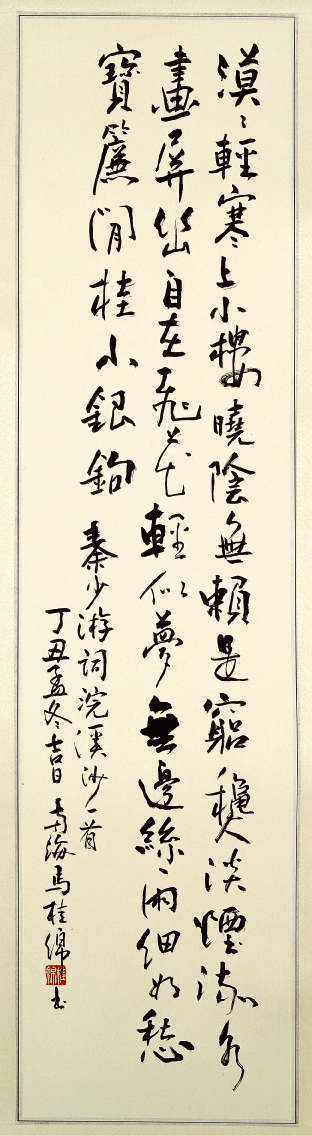 漠〻輕寒上小樓曉陰無賴是窮龝淡煙流水
畫屏幽自在飛花輕似夢無邊絲雨細如愁
寶簾閒挂小銀鉤 秦少游詞浣溪沙一首
丁丑孟冬吉日 南海馬桂綿書